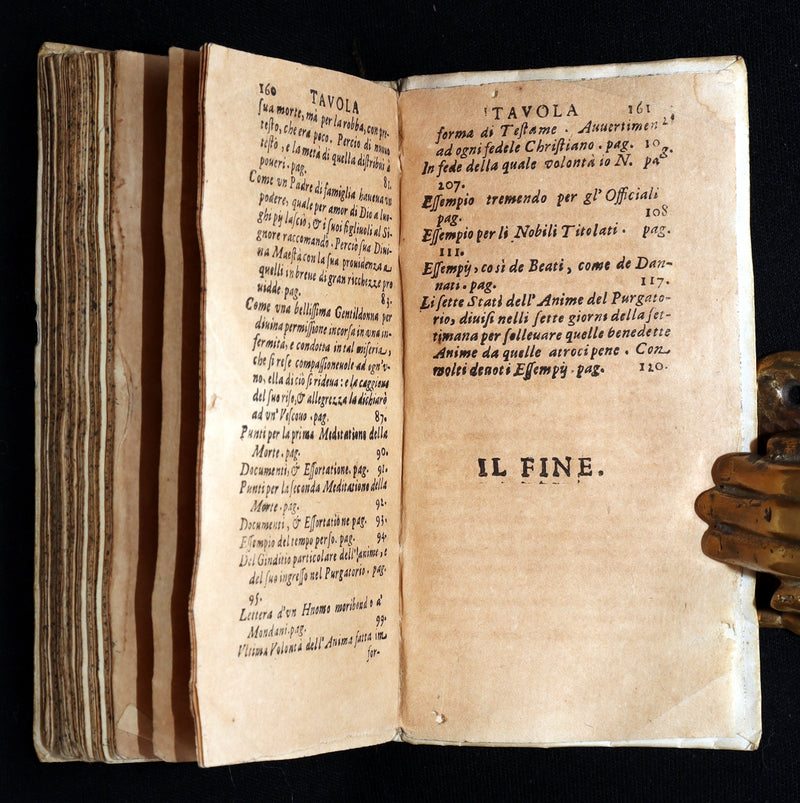 160 TAVOLA
sua morte, mà per la robba, con pre-
testo, che era poco. Perciò di nuouo
testò, e la metà di quella distribuì à
poueri. pag. 82.
Come vn Padre di famiglia haueua vn
podere, quale per amor di Dio a luo-
ghi pij lasciò, & i suoi figliuoli al Si-
gnore raccomandò. Perciò sua Diui-
na Maestà con la sua prouidenza a
quelli in breue di gran ricchezze pro
uidde pag. 83.
Come vna bellissima Gentildonna per
diuina permissione incorsa in vna in-
fermità, e condotta in tal miseria,
che si rese compassioneuole ad ogn'v-
no, ella di ciò si rideua: e la caggione
del suo riso, & allegrezza la dichiarò
ad vn' Vescouo. pag. 87.
Punti per la prima Meditatione della
Morte. pag. 90.
Documenti, & Essortatione. pag. 91.
Punti per la seconda Meditatione della
Morte. pag. 92.
Documenti, & Essortatione pag. 93.
Essempio del tempo perso. pag. 94.
Del Giuditio particolare dell'Anime, e
del suo ingresso nel Purgatorio. pag.
95.
Lettera d'vn Huomo moribondo a'
Mondani. pag. 99.
Vltima Volontà dell'Anima fatta in
for-
TAVOLA 161
forma di Testame. Auuertimen
ad ogni fedele Christiano. pag.
In fede della quale volontà io N. pag.
207.
Essempio tremendo per gl'Officiali
pag. 108
Essempio per li Nobili Titolati. pag.
111.
Essempij, così de Beati, come de Dan-
nati. pag. 117.
Li sette Stati dell'Anime del Purgato-
rio, diuisi nelli sette giorni della set-
timana per solleuare quelle benedette
Anime da quelle atroci pene. Con
molti deuoti Essempij. pag. 120.
IL FINE.